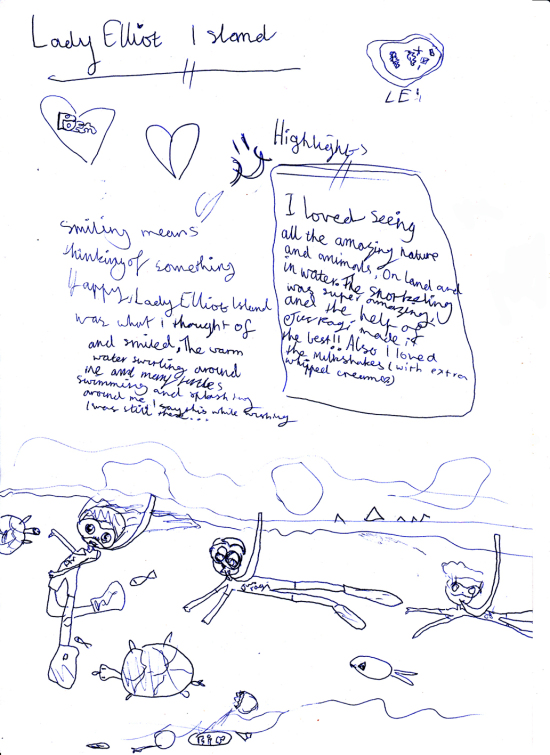 Lady Elliot Island
LEI
Poem
Highlights
I loved seeing
all the amazing nature
and animals. On land and
in water. the snorkeling
was super amazing,
and the help of
made it
the best!! Also I loved
the milkshakes (with extra
whipped cream)
smiling means
thinking of something
Happy, Lady Elliot Island
was what I thought of
and smiled, The warm
water swirling around
me and many turtles
swimming and splashing
around me I say this while wishing
I was still there...